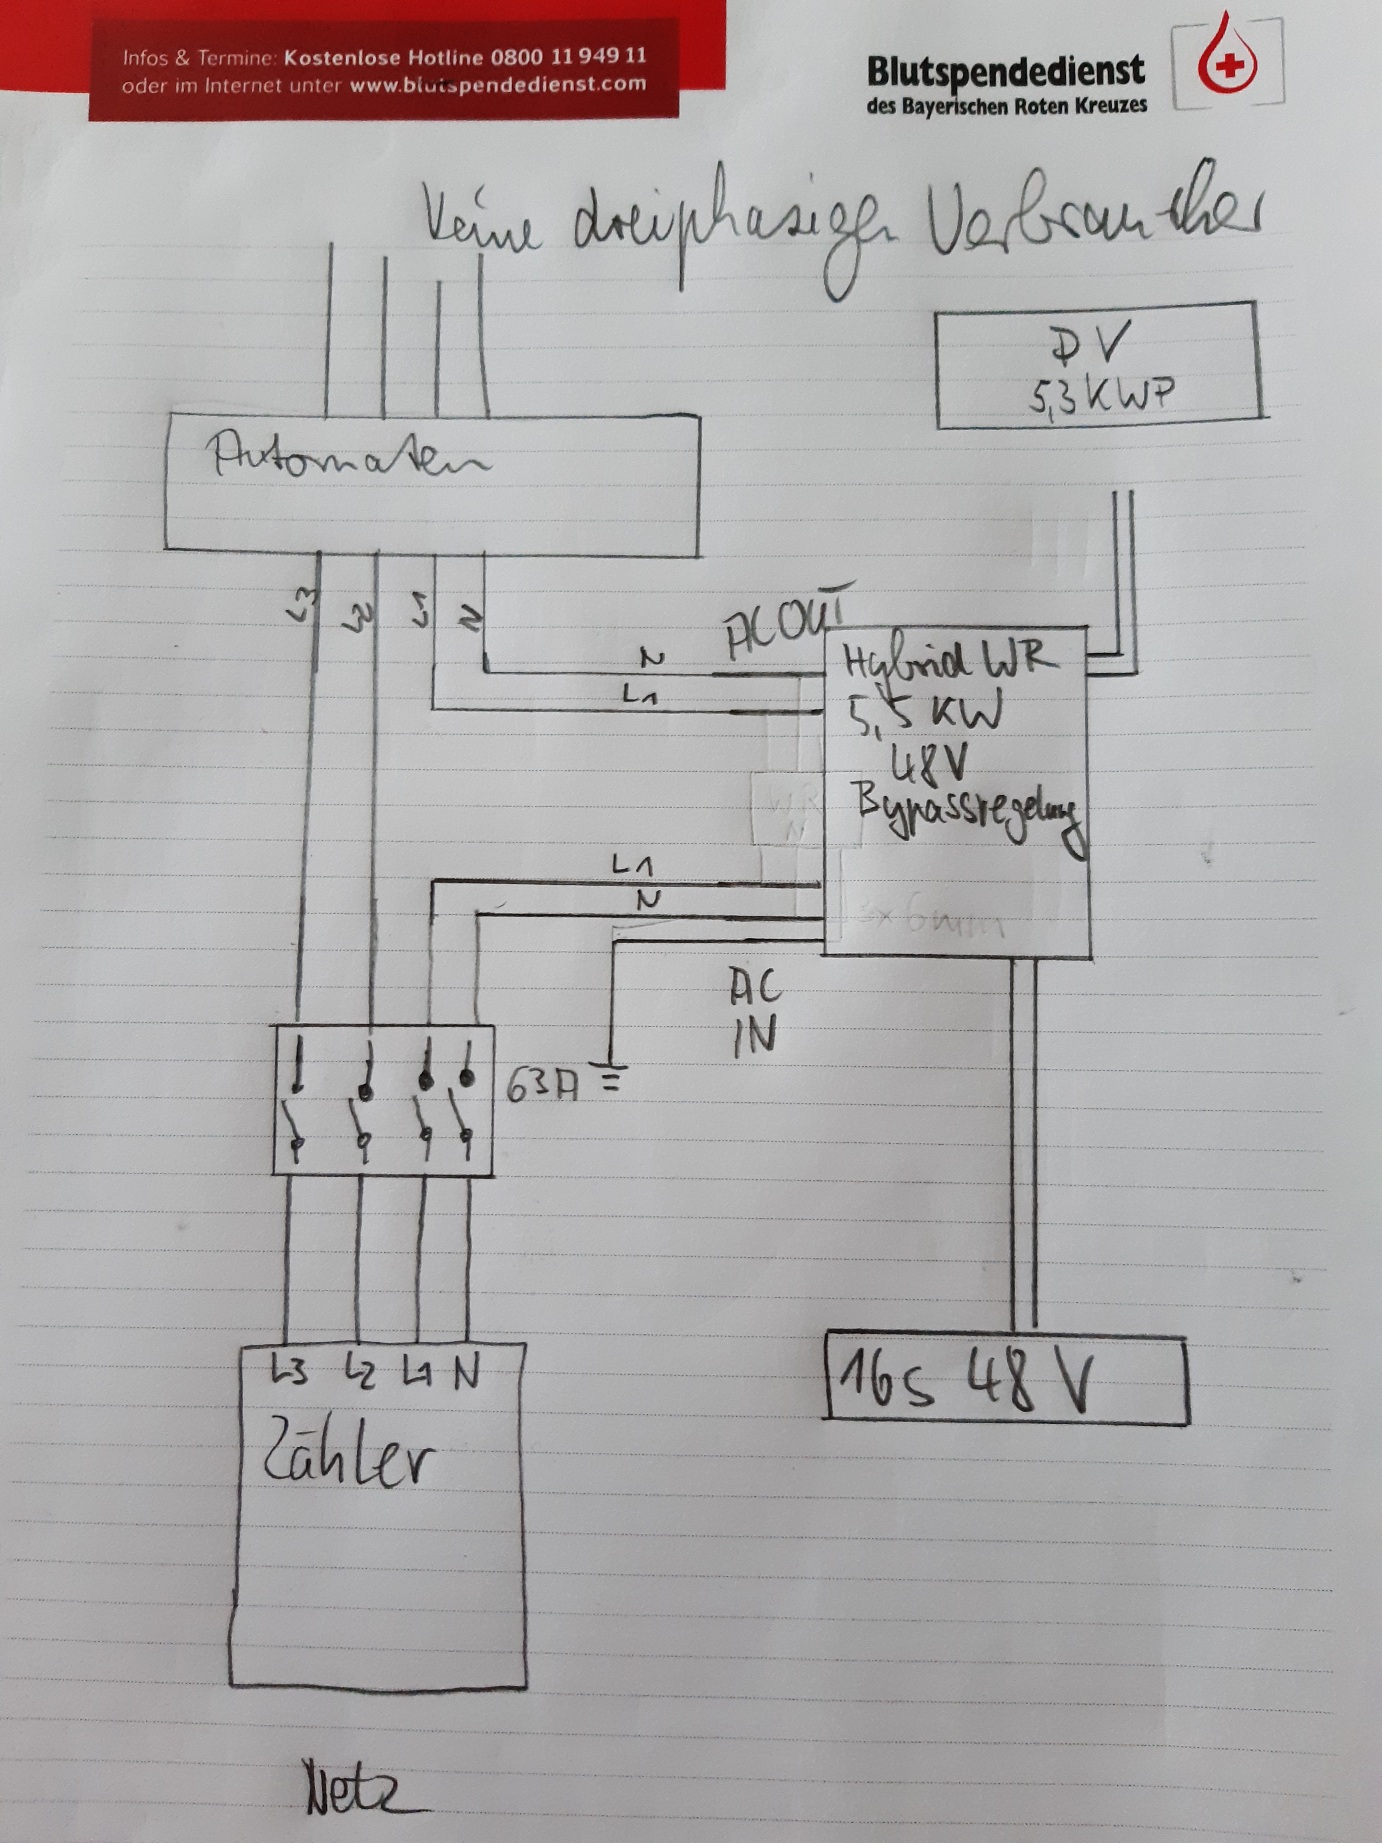 Infos & Termine: Kostenlose Hotline 0800 11 949 11
oder im Internet unter www.blutspendedienst.com
Blutspendedienst
des Bayerischen Roten Kreuzes
Keine dreiphasigen Verbraucher
PV
5,3 KWP
Automaten
L3 L2 L1 N
AC OUT
N
L1
Hybrid WR
5,5 KW
48V
Bypassregelung
WR
N
L1
N
3x6mm
AC
IN
63A
L3 L2 L1 N
Zähler
16s 48V
Netz